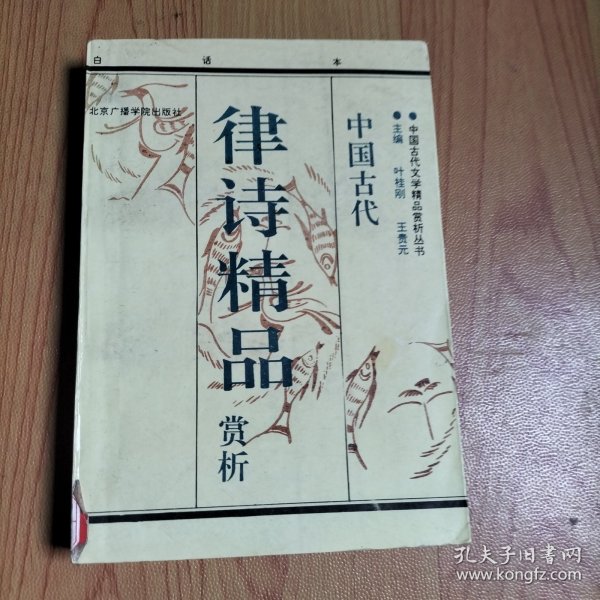 白 话 本
北京广播学院出版社
●中国古代文学精品赏析丛书
●主编 叶桂刚 王贵元
中国古代
律诗精品
赏析
孔夫子旧书网
www.kongfz.com